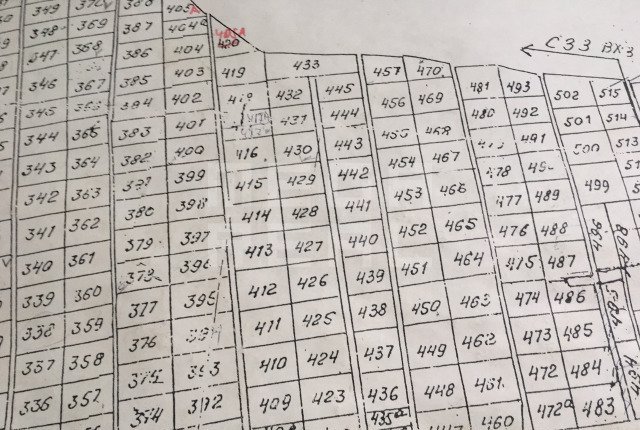 349 370 388 405A
348 369 387 404 405A
420
347 368 386 404 419 433 457 470 СЗЗ ВХ-3
346 367 385 403 432 445 456 469 481 493 502 515
345 384 402 431 444 468 480 492 501 514
344 365 383 401 416 430 443 454 467 491 500 513
343 364 382 400 415 429 442 453 466 478 499
342 363 399 414 428 441 452 465 477 489 498
341 362 380 398 413 427 440 451 464 476 488
340 361 379 397 412 426 439 450 463 475 487
339 360 379 396 411 425 438 449 462 474 486
338 359 377 395 410 424 437 448 461 473 485
337 358 376 394 409 423 436 447 460 472 484
336 357 375 393 435а 472а 483
374 392